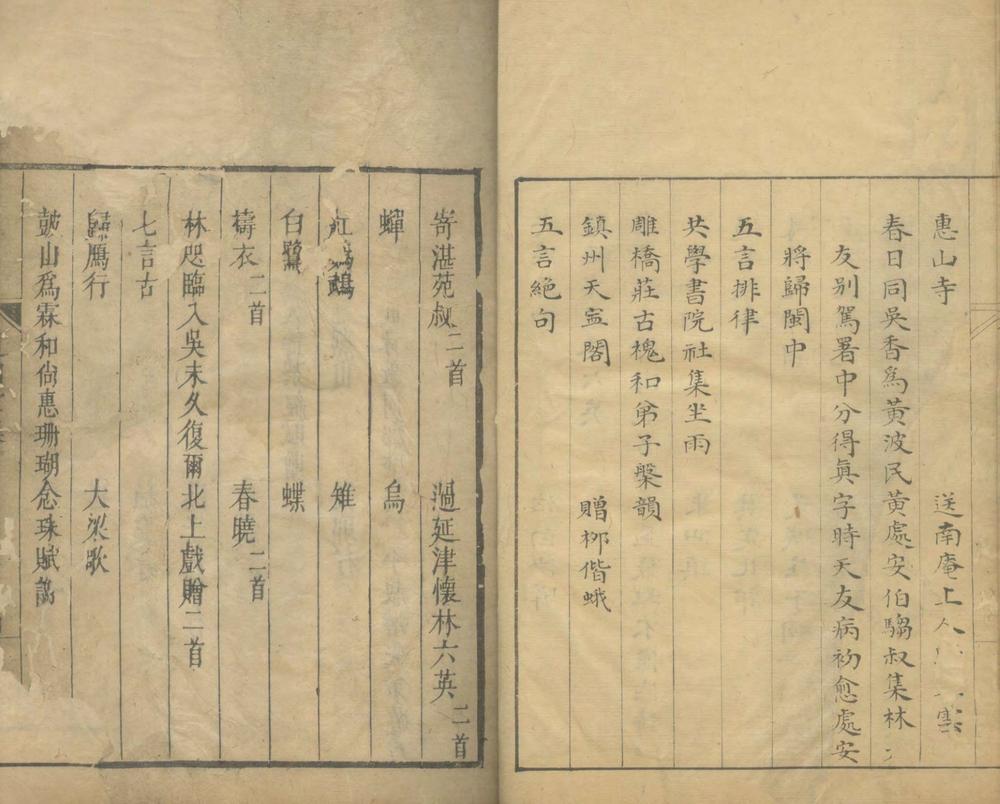 惠山寺 送南庵上人 雲
春日同吳香爲黃波民黃處安伯騶叔集林
友別駕署中分得眞字時天友病初愈處安
將歸閩中
五言排律
共學書院社集坐雨
雕橋莊古槐和弟子槃韻
鎮州天寍閣 贈栁偕蛾
五言絕句
寄湛苑叔二首 過延津懷林六英二首
蟬 烏
紅鸚鵡 雉
白鷺 蝶
擣衣二首 春曉二首
林咫臨入吳未久復爾北上戲贈二首
七言古
歸鴈行 大梁歌
鼓山爲霖和尙惠珊瑚念珠賦謝